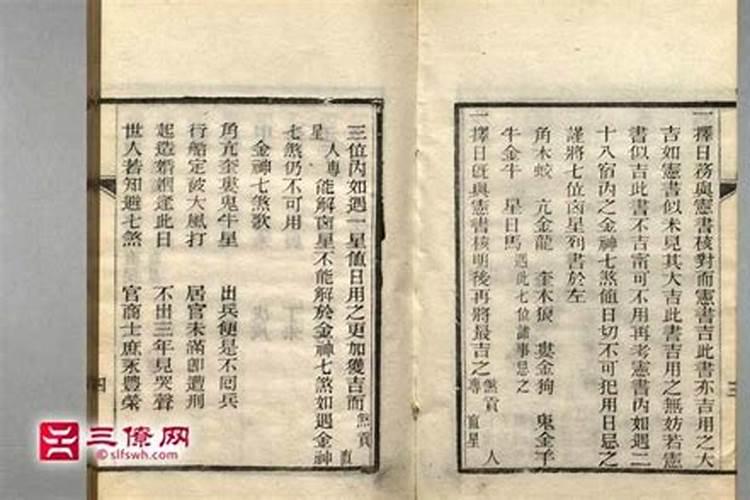 一擇日務與憲書核對而憲書吉此書亦吉用之大
吉如憲書似未見其大吉此書吉用之無妨若憲
書似吉此書不吉甯可不用再考憲書內如遇二
十八宿內之金神七煞值日切不可犯用日忌之
謹將七位凶星列書於左
角木蛟 亢金龍 奎木狼 婁金狗 鬼金羊
牛金牛 星日馬 遇此七位諸事忌之
一擇日旣與憲書核明後再將最吉之煞貢專直星人
三位內如遇一星值日用之更加獲吉而煞貢直
星人專能解凶星不能解於金神七煞如遇金神
七煞仍不可用
金神七煞歌
角亢奎婁鬼牛星 出兵便是不回兵
行船定被大風打 居官未滿卽遭刑
起造婚姻逢此日 不出三年見哭聲
世人若知避七煞 官商士庶永豐榮
三
四
三僚网
©slfswh.com